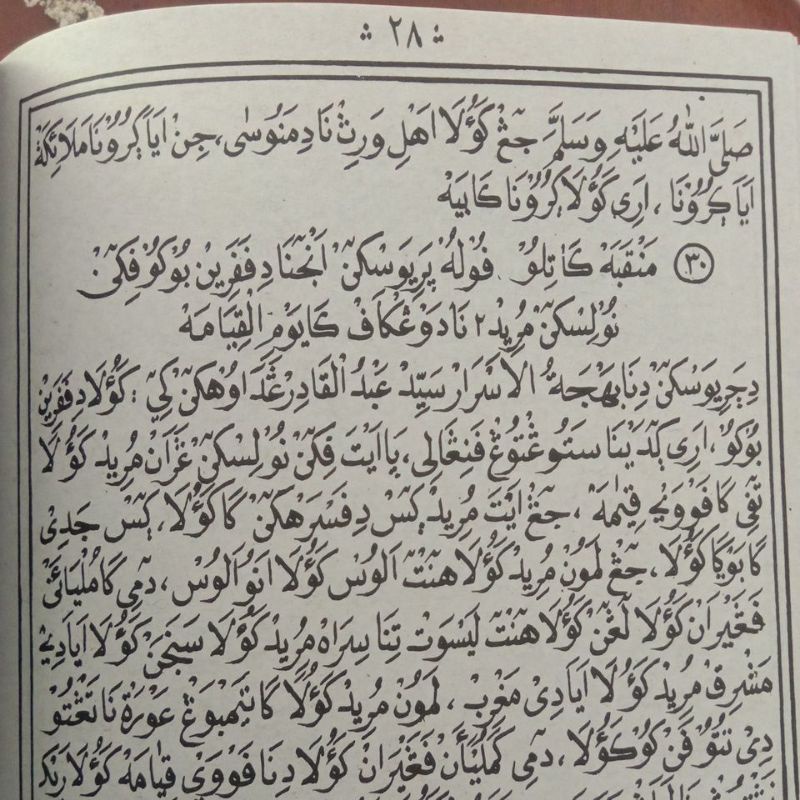 ۲۸
صَلَّى اللهُ عَلَيْهِ وَسَلَّمَ جٜڠْ كَوُلَا اَهْلِ وَرِثْ نَا دِ مَنُوسٰى، جِنْ اَيَا ݢُرُوْنَا مَلَائِكَةْ
اَيَا ݢُرُوْنَا، اَرِيْ كَوُلَا ݢُرُوْنَا كَابٜيَهْ
۳۰ مَنْقَبَهْ كَا تِلُوْ ڤُوْلُهْ ڽَرِيَوْسْكٜنْ اَنْجٜنَا دِڤَڤَرِيْنْ بُوْكُوْ ڤِكٜيْنْ
نُوْلِسْكٜنْ مُرِيْد۲ نَا دَوْڠْكَافْ كَا يَوْمِ الْقِيَامَهْ
دِچَرِيَوْسْكٜنْ دِنَا بَهْجَةُ الْأَسْرَارْ سَيِّدْ عَبْدُ الْقَادِرْ ڠَدَاوُهْكٜنْ كِيْ: كَوُلَا دِڤَڤَرِيْنْ
بُوْكُوْ، اَرِيْ ݢٜدٜيْنَا سَتُوْڠْتُوْڠْ ڤَنِڠَالِيْ، ڽَاٜيْتَ ڤِكٜيْنْ نُوْلِسْكٜنْ ڠَرَانْ مُرِيْدْ كَوُلَا
تٜڤِيْ كَا ڤَوْوٜيْ قِيٰمَهْ، جٜڠْ اٜيْتَ مُرِيْدْ ݢٜسْ دِڤَسْرَهْكٜنْ كَا كَوُلَا، ݢٜسْ جَدِيْ
كَابَوْݢَا كَوُلَا، جٜڠْ لَمُوْنْ مُرِيْدْ كَوُلَا هٜنْتٜ اَلُوْسْ كَوُلَا اَنُوْ اَلُوْسْ، دٜمِيْ كَامُلْيَائَنْ
ڤَڠٜيْرَانْ كَوُلَا لَڠٜنْ كَوُلَا هٜنْتٜ لٜيْسَوْتْ تِنَا سِرَاهْ مُرِيْدْ كَوُلَا سَنَجَنْ كَوُلَا اَيَا دِيْ
مَشْرِقْ مُرِيْدْ كَوُلَا اَيَا دِيْ مَغْرِبْ، لَمُوْنْ مُرِيْدْ كَوُلَا كَا تٜيْمْبَوْڠْ عَوْرَةْ نَا تَڠْتُوْ
دِيْ تُتُوْڤَنْ كُوْ كَوُلَا، دٜمِيْ كَمُلْيَأَنْ ڤَڠٜيْرَانْ كَوُلَا دِنَا ڤَوْوٜيْ قِيَامَهْ كَوُلَا رٜيْكْ